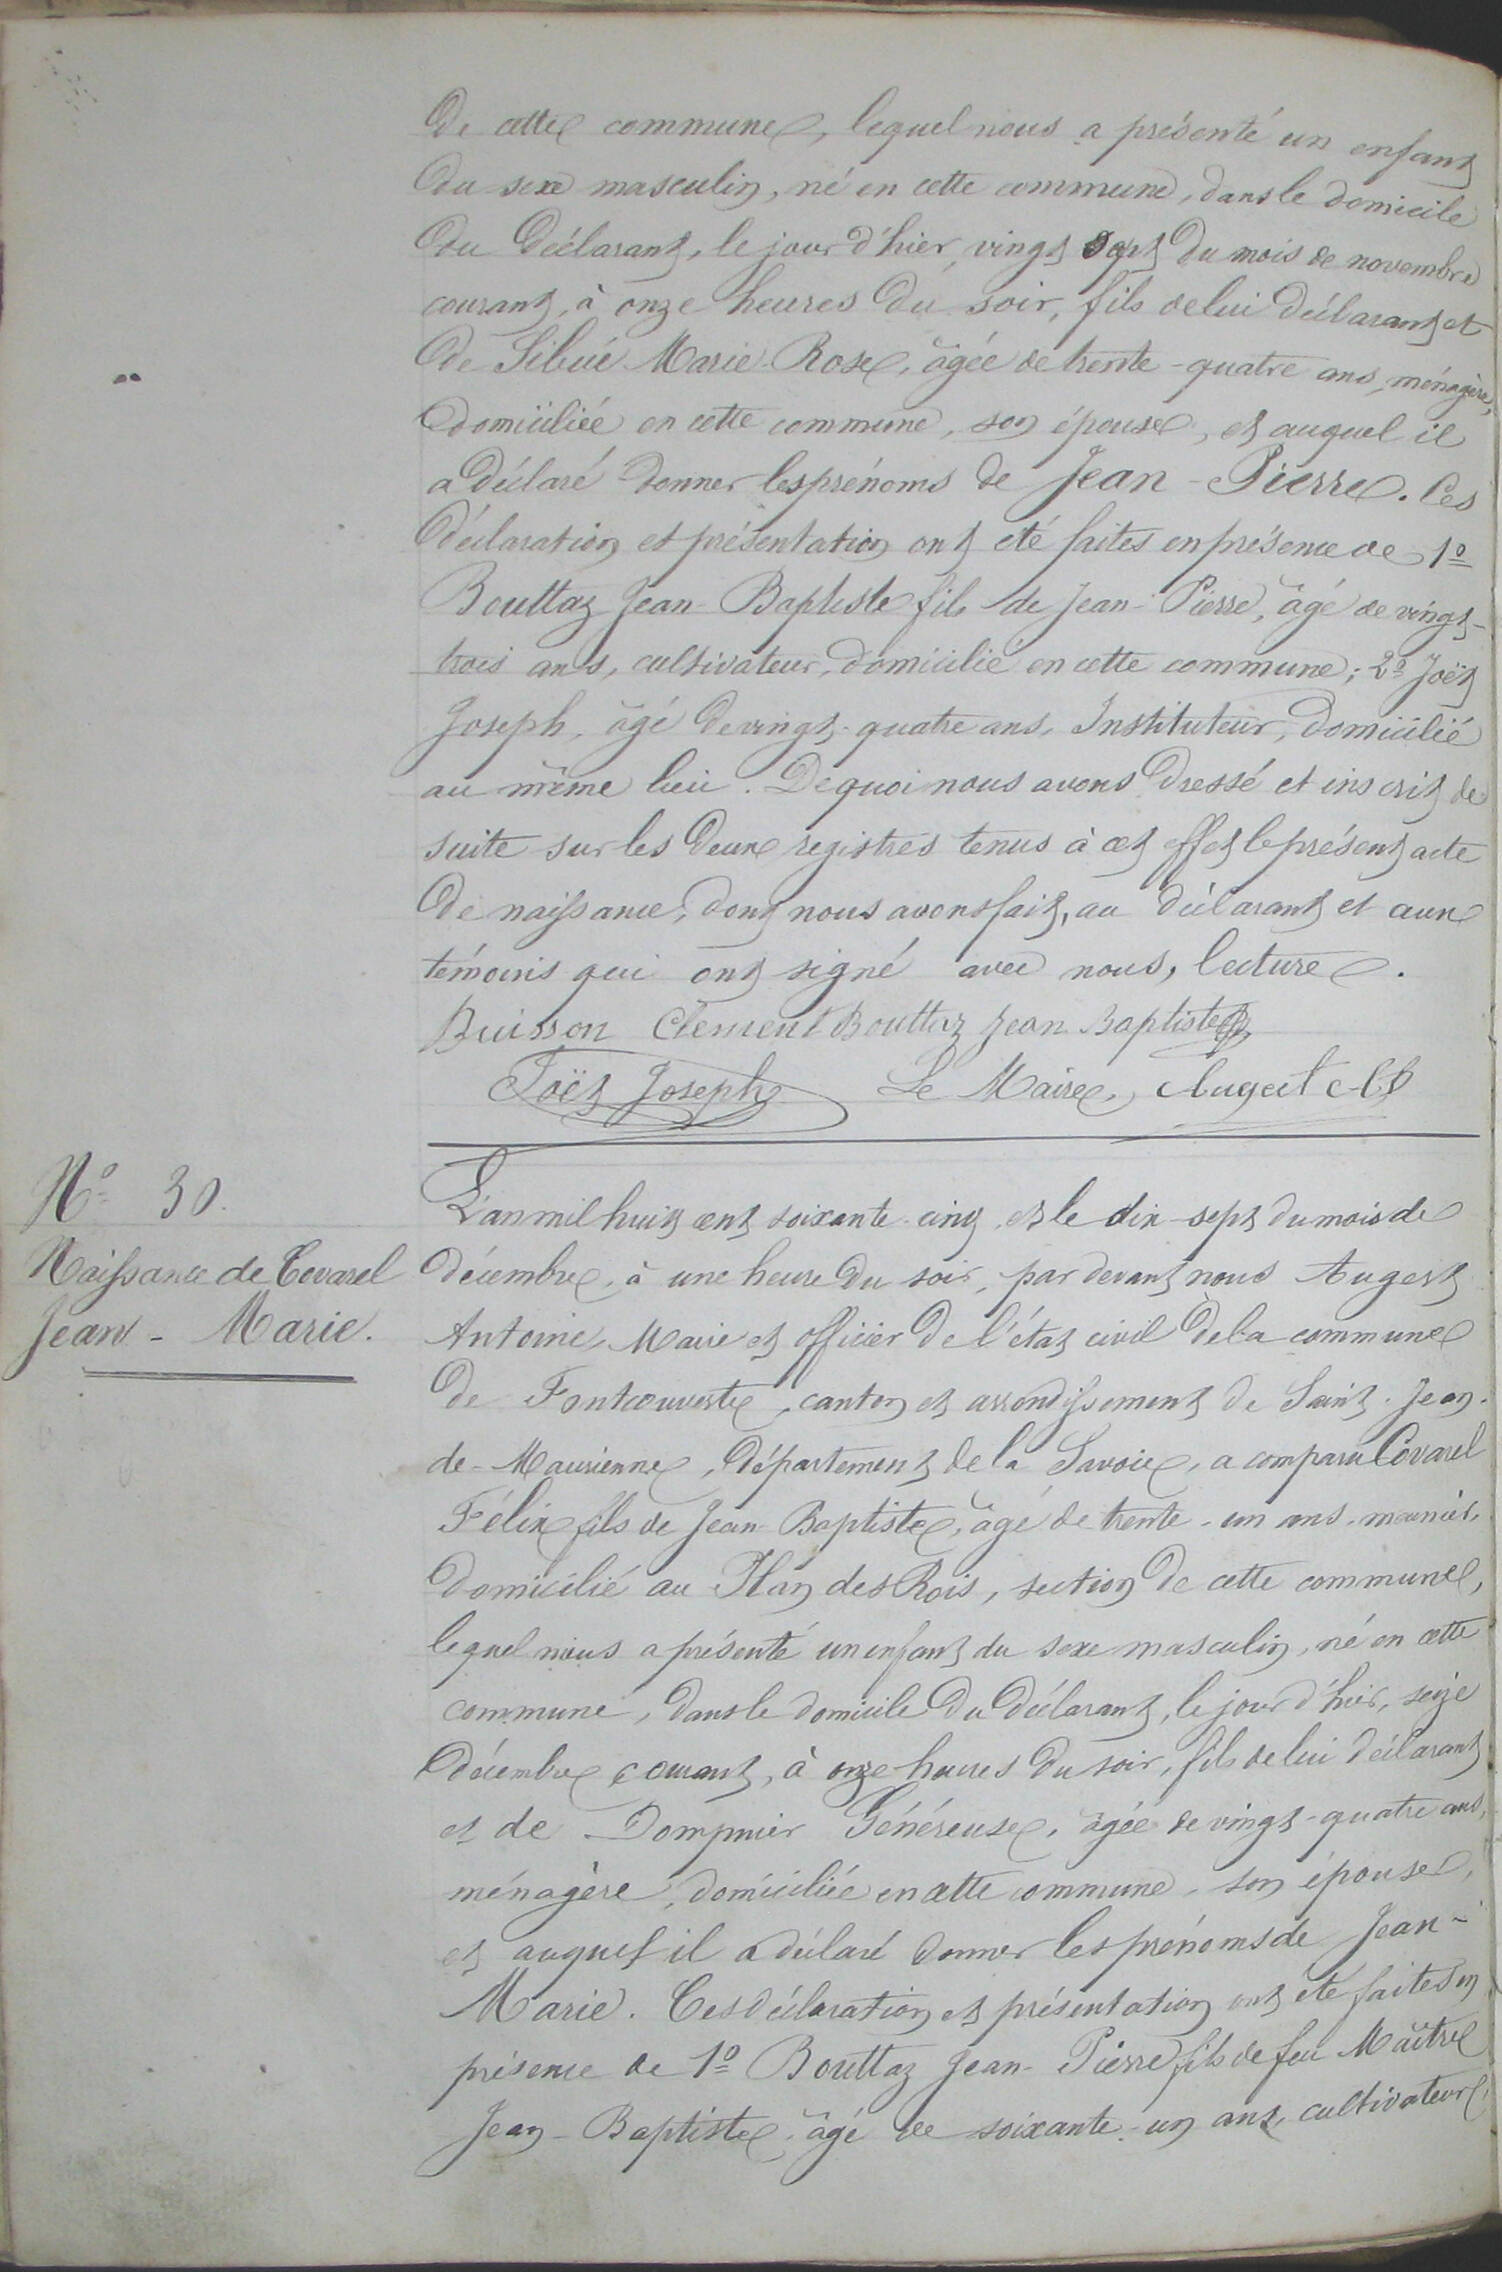 de cette commune, lequel nous a présenté un enfant
du sexe masculin, né en cette commune, dans le domicile
du déclarant, le jour d'hier, vingt sept du mois de novembre
courant, à onze heures du soir, fils de lui déclarant et
de Sibué Marie-Rose, âgée de trente-quatre ans, ménagère,
domiciliée en cette commune, son épouse, et auquel il
a déclaré donner les prénoms de Jean-Pierre. Ces
déclaration et présentation ont été faites en présence de 1º
Bouttaz Jean-Baptiste fils de Jean-Pierre, âgé de vingt-
trois ans, cultivateur, domicilié en cette commune; 2º Joët
Joseph, âgé de vingt-quatre ans, Instituteur, domicilié
au même lieu. De quoi nous avons dressé et inscrit de
suite sur les deux registres tenus à cet effet le présent acte
de naissance, dont nous avons fait, au déclarant et aux
témoins qui ont signé avec nous, lecture.
Buisson Clement Bouttaz Jean Baptiste
Joët Joseph Le Maire, Augert
Nº 30.
Naissance de Covarel
Jean-Marie.
L'an mil huit cent soixante-cinq, et le dix-sept du mois de
décembre, à une heure du soir, par devant nous Augert
Antoine, Maire et officier de l'état civil de la commune
de Fontcouverte, canton et arrondissement de Saint-Jean-
de-Maurienne, département de la Savoie, a comparu Covarel
Félix fils de Jean-Baptiste, âgé de trente-un ans, meunier,
domicilié au Plan des Rois, section de cette commune,
lequel nous a présenté un enfant du sexe masculin, né en cette
commune, dans le domicile du déclarant, le jour d'hier, seize
décembre courant, à onze heures du soir, fils de lui déclarant
et de Dompnier Généreuse, âgée de vingt-quatre ans,
ménagère, domiciliée en cette commune, son épouse,
et auquel il a déclaré donner les prénoms de Jean-
Marie. Ces déclaration et présentation ont été faites en
présence de 1º Bouttaz Jean-Pierre fils de feu Maître
Jean-Baptiste, âgé de soixante-un ans, cultivateur,